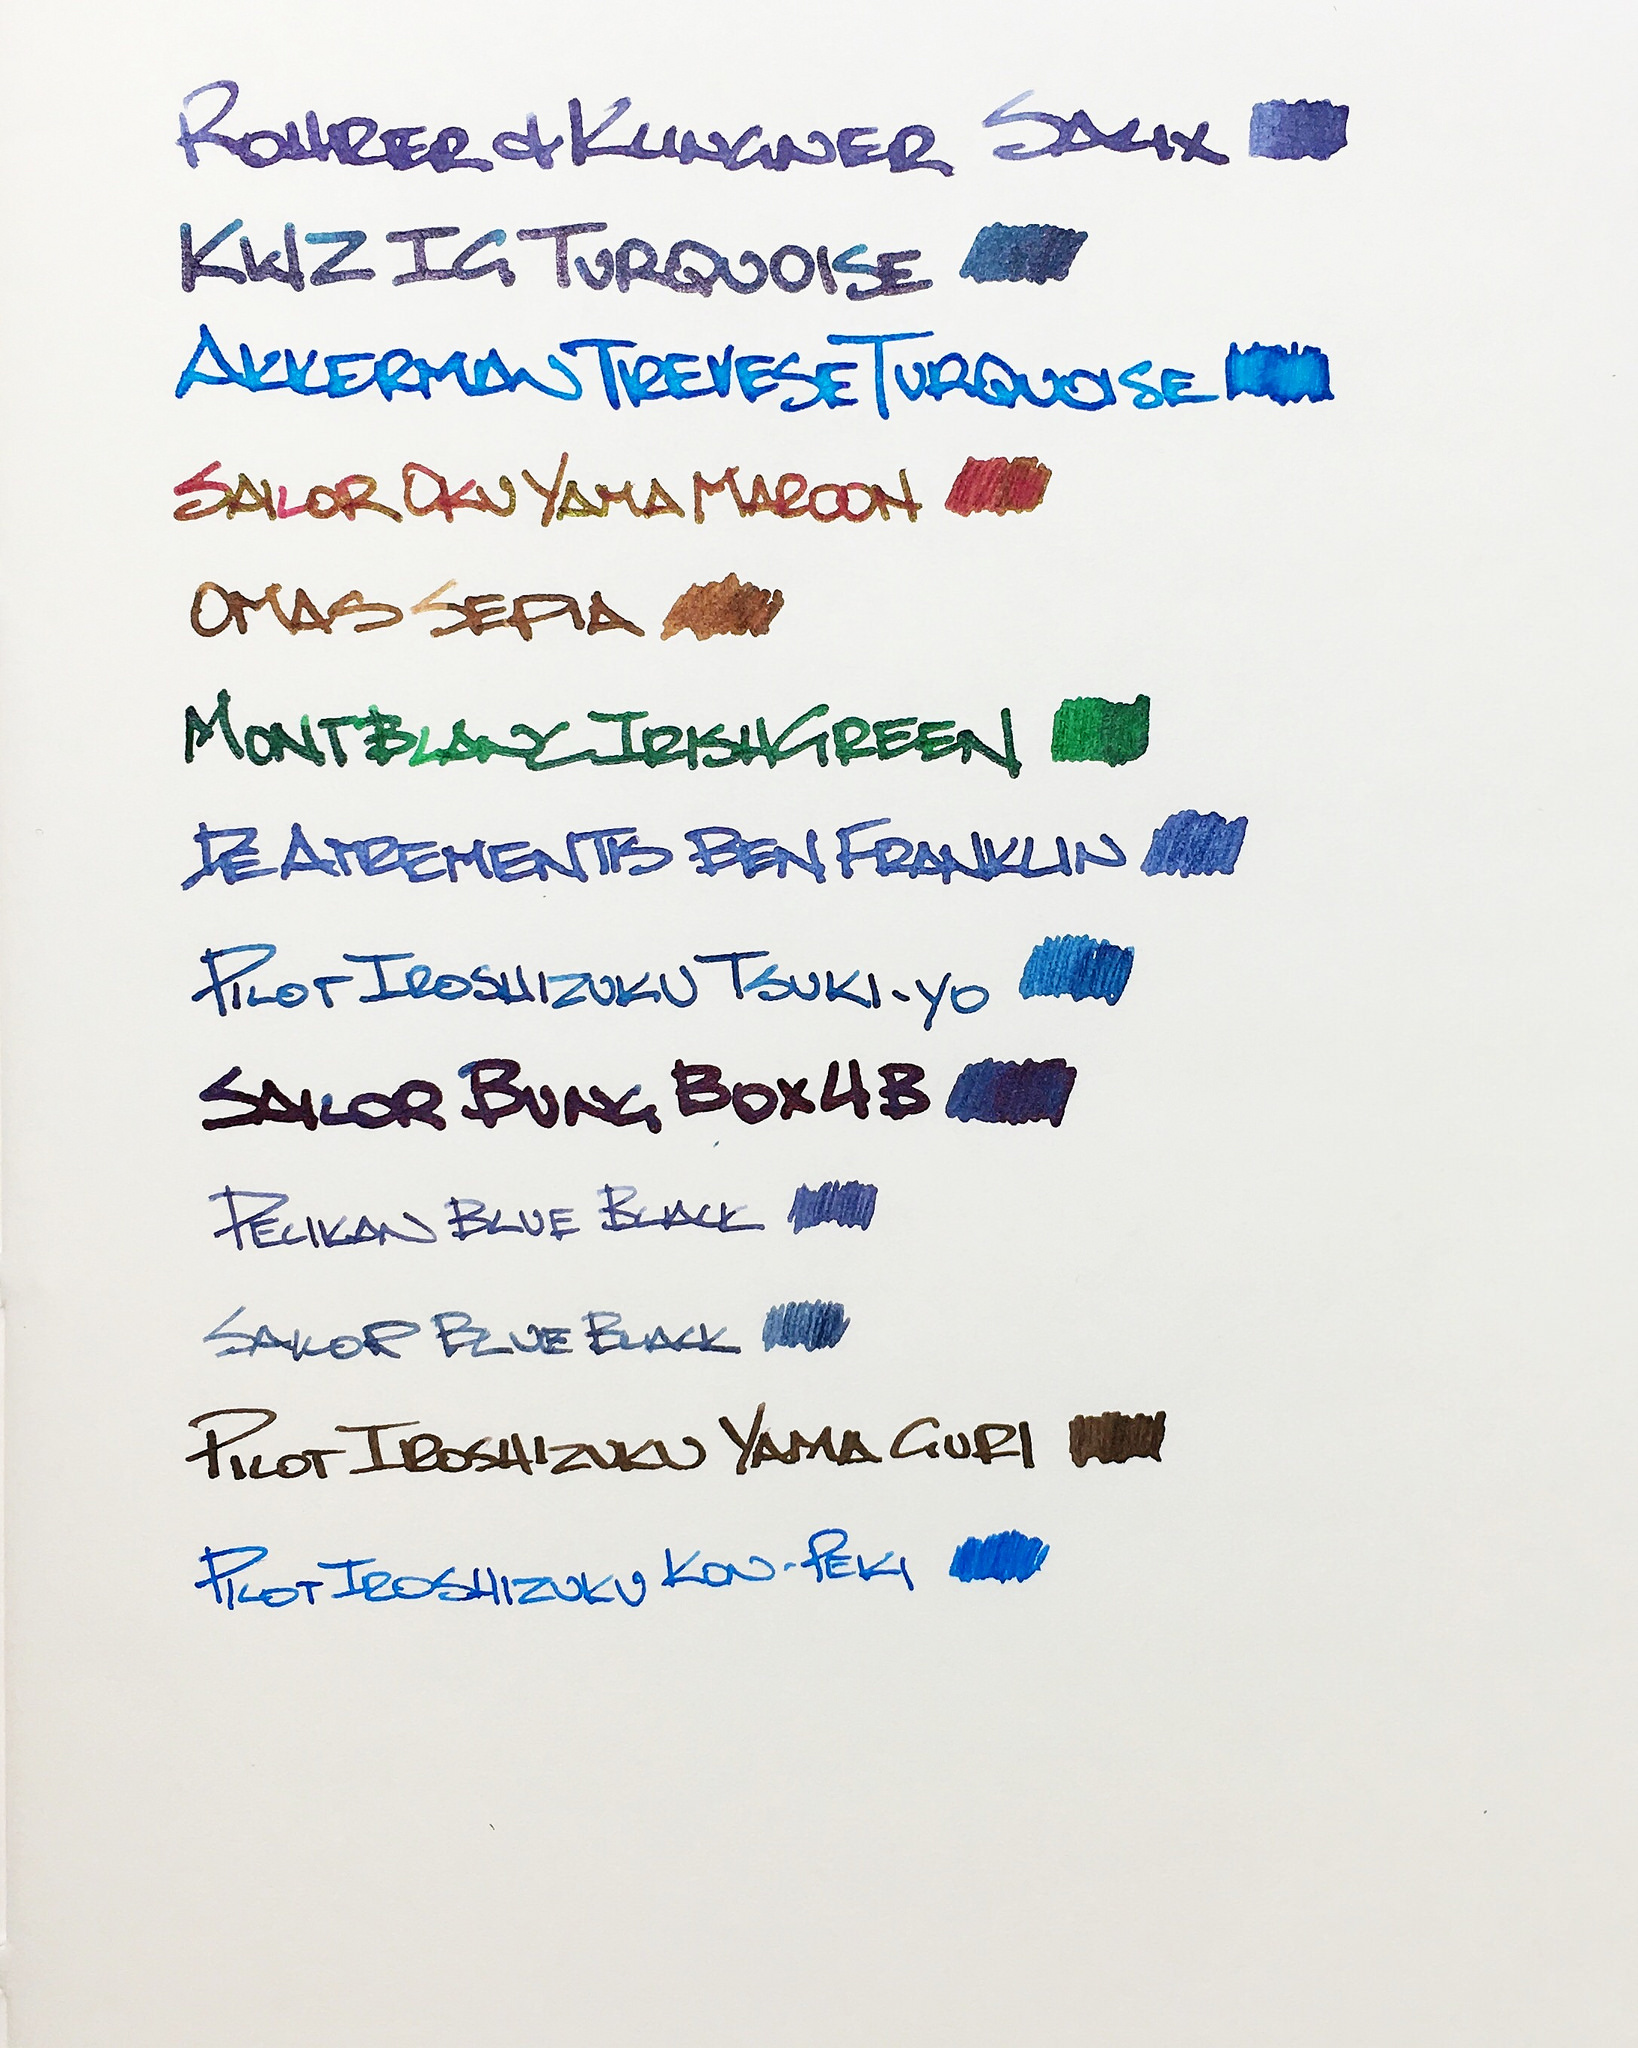 ROHRER & KLINGNER SALIX
KWZ IG TURQUOISE
AKKERMAN TREVESE TURQUOISE
SAILOR OKU YAMA MAROON
OMAS SEPIA
MONTBLANC IRISH GREEN
DE ATREMENTIS BEN FRANKLIN
PILOT IROSHIZUKU TSUKI-YO
SAILOR BUNG BOX 4B
PELIKAN BLUE BLACK
SAILOR BLUE BLACK
PILOT IROSHIZUKU YAMA GURI
PILOT IROSHIZUKU KON-PEKI